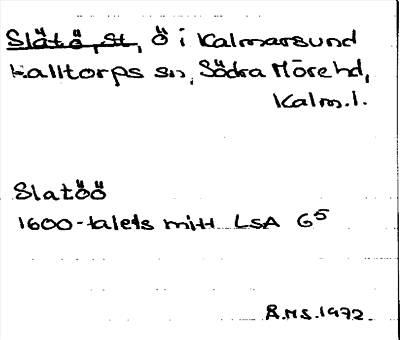 Slätö, st, ö i Kalmarsund
Halltorps sn, Södra Möre hd,
Kalm.l.
Slatöö
1600-talets mitt LSA G5
Å.M.S.1972.